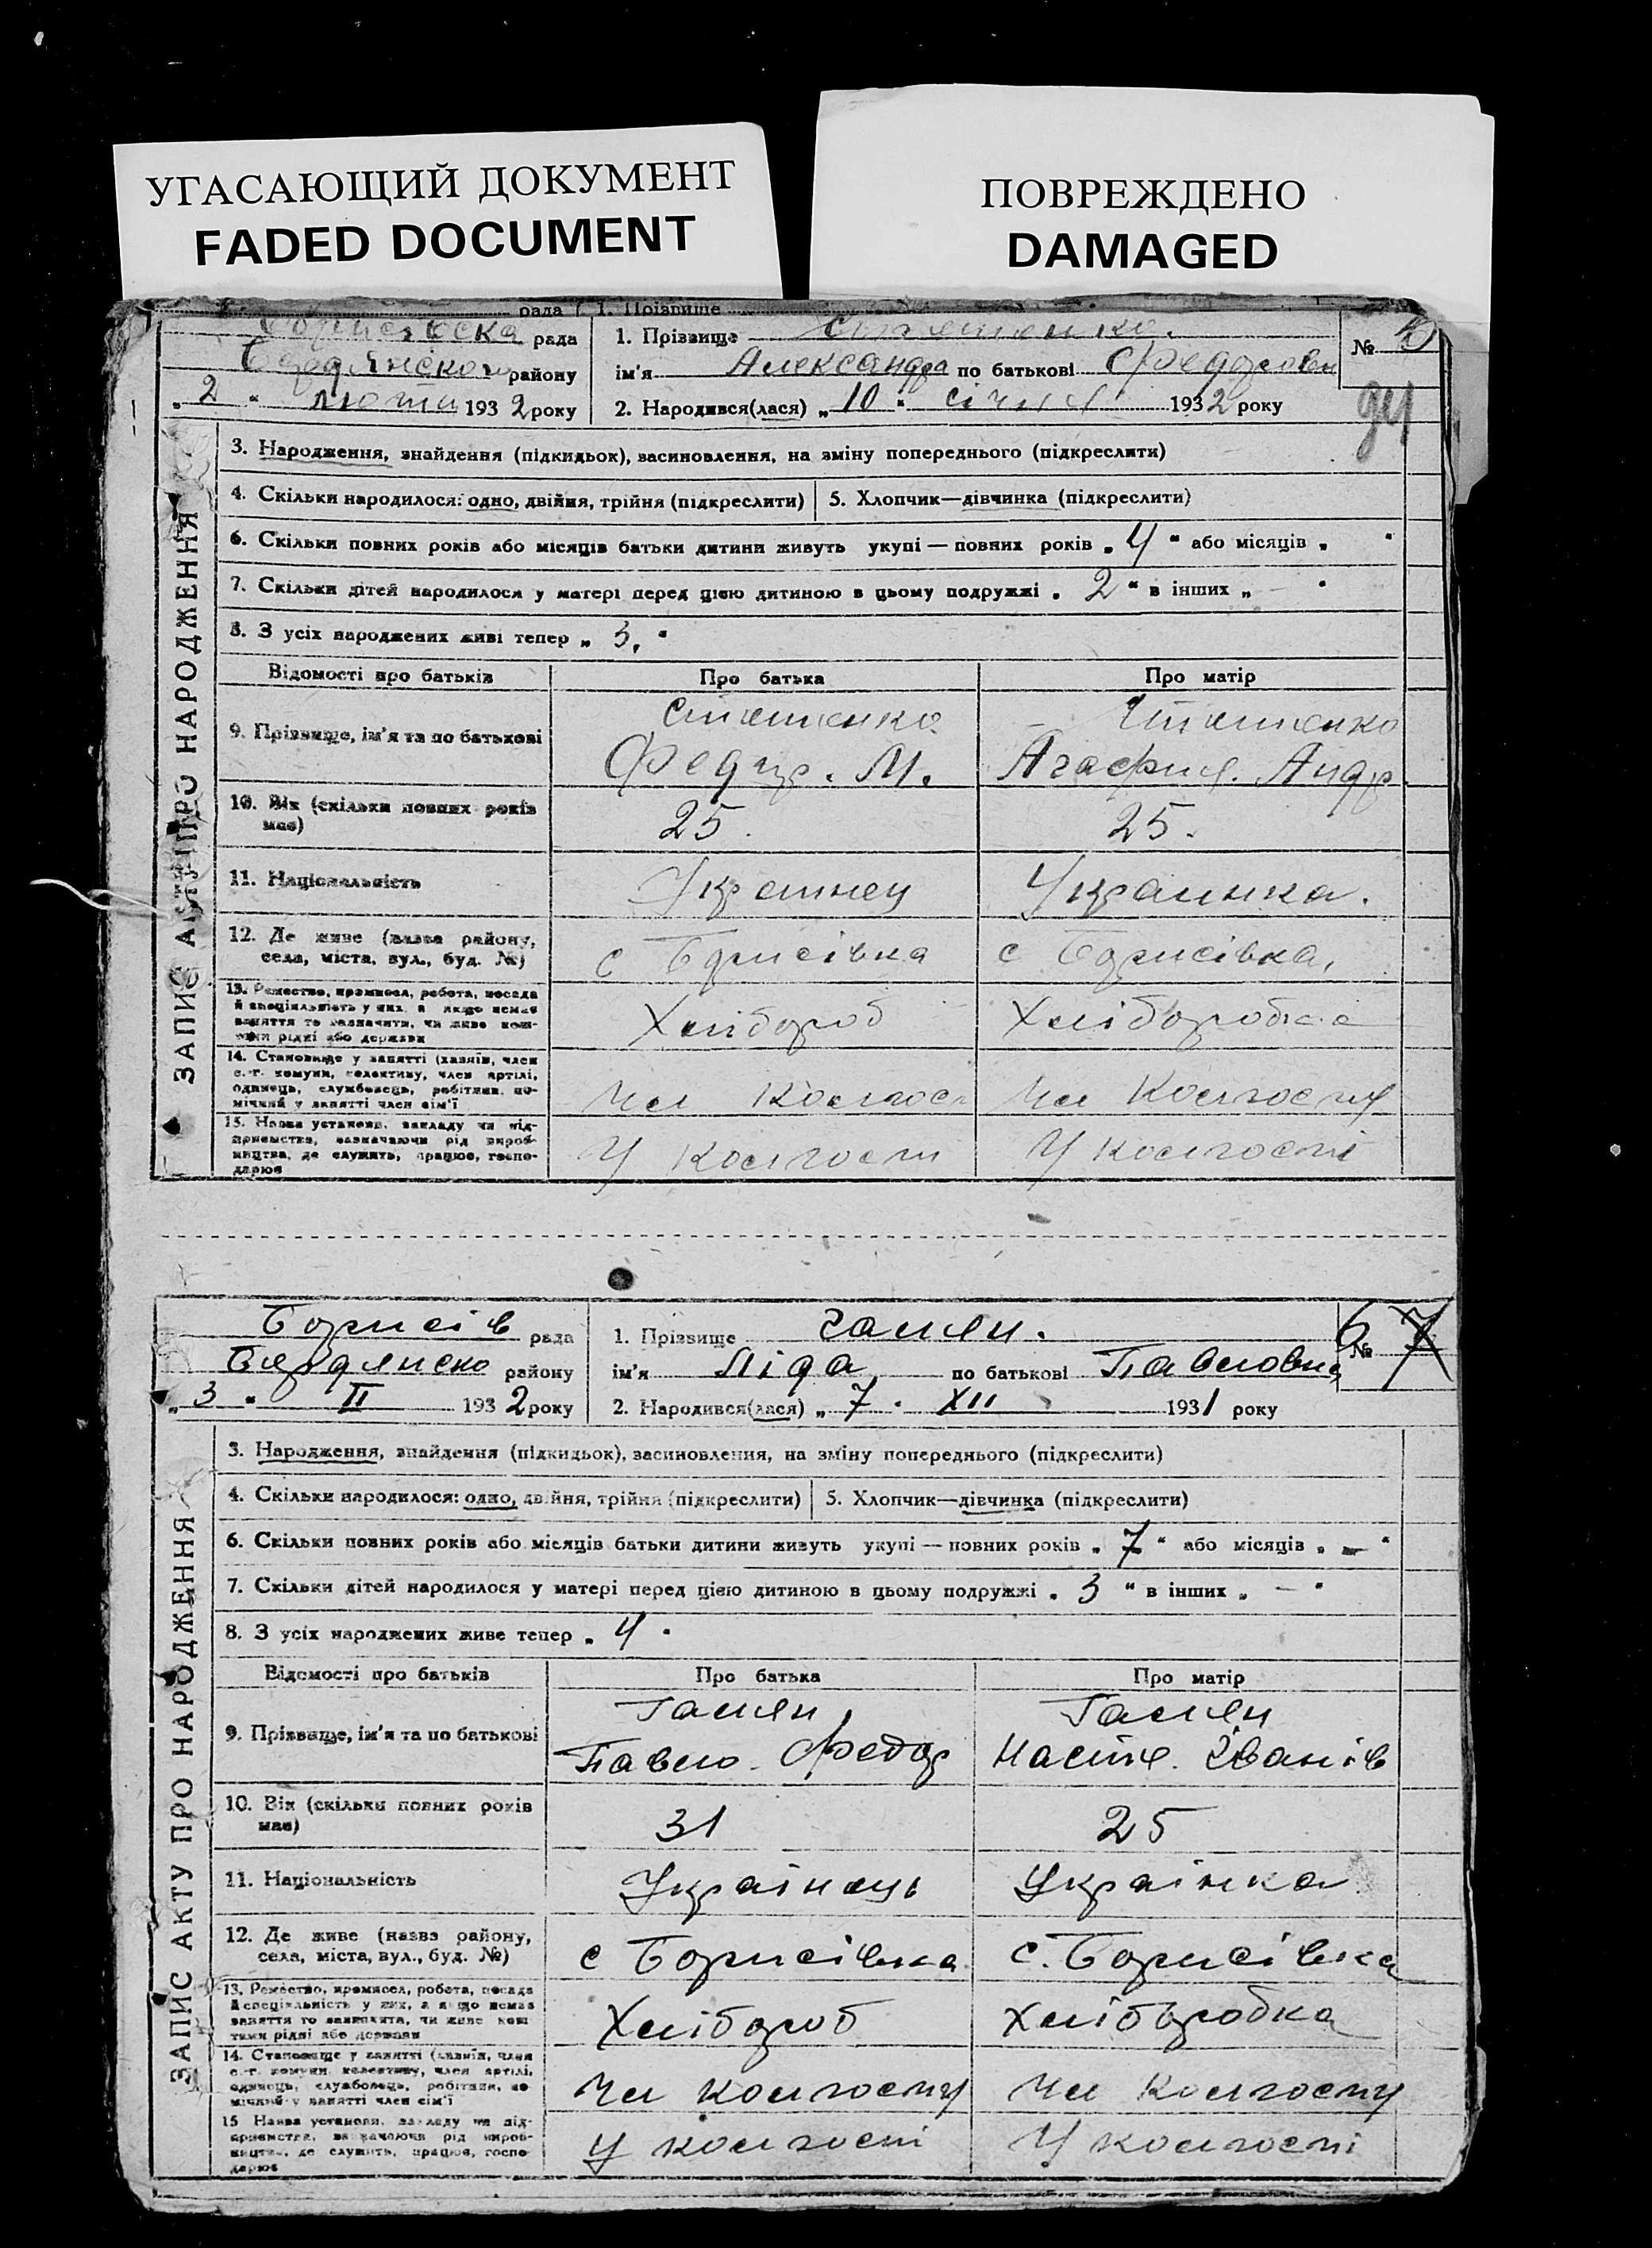 УГАСАЮЩИЙ ДОКУМЕНТ
FADED DOCUMENT
ПОВРЕЖДЕНО
DAMAGED
рада 1. Прізвище
рада 1. Прізвище
Бердянского району ім'я Александра по батькові Федоровн
№
„ 2 “ люти 1932 року 2. Народився(лася) „ 10 “ січня 1932 року
ЗАПИС АКТУ ПРО НАРОДЖЕННЯ
3. Народження, знайдення (підкидьок), васиновлення, на зміну попереднього (підкреслити)
4. Скільки народилося: одно, двійня, трійня (підкреслити) 5. Хлопчик—дівчинка (підкреслити)
6. Скільки повних років або місяців батьки дитини живуть укупі — повних років „ 4 “ або місяців „ “
7. Скільки дітей народилося у матері перед цією дитиною в цьому подружжі „ 2 “ в інших „ — “
8. З усіх народжених живі тепер „ 3. “
Відомості про батьків Про батька Про матір
9. Прізвище, ім'я та по батькові
Федор. М. Агафия. Андр.
10. Вік (скільки повних років має) 25. 25.
11. Національність Украинец Украинка.
12. Де живе (назва району, села, міста, вул., буд. №) с Борисівка с Борисівка,
13. Ремество, промисел, робота, посада й спеціяльність у них, а якщо немає заняття то зазначити, чи живе коштами рідні або держави Хлібороб Хліборобка
14. Становище у занятті (хазяїн, член с.-г. комуни, колективу, член артілі, одинець, службовець, робітник, помічний у занятті член сім'ї Чл Колгосп Чл Колгоспу
15. Назва установи, закладу чи підприємства, зазначаючи рід виробництва, де служить, працює, господарює У колгоспи У колгоспі
Борисів рада 1. Прізвище Галян.
6 № 7
Бердянско району ім'я Ліда по батькові Павловна
„ 3 “ II 1932 року 2. Народився(лася) „ 7 “ XII 1931 року
ЗАПИС АКТУ ПРО НАРОДЖЕННЯ
3. Народження, знайдення (підкидьок), васиновлення, на зміну попереднього (підкреслити)
4. Скільки народилося: одно, двійня, трійня (підкреслити) 5. Хлопчик—дівчинка (підкреслити)
6. Скільки повних років або місяців батьки дитини живуть укупі — повних років „ 7 “ або місяців „ — “
7. Скільки дітей народилося у матері перед цією дитиною в цьому подружжі „ 3 “ в інших „ — “
8. З усіх народжених живе тепер „ 4 “
Відомості про батьків Про батька Про матір
Галян Галян
9. Прізвище, ім'я та по батькові
Павло. Федор Настя. Іванів
10. Вік (скільки повних років має) 31 25
11. Національність Українець Українка
12. Де живе (назва району, села, міста, вул., буд. №) с Борисівка с. Борисівка
13. Ремество, промисел, робота, посада й спеціяльність у них, а якщо немає заняття то зазначити, чи живе коштами рідні або держави Хлібороб Хліборобка
14. Становище у занятті (хазяїн, член с.-г. комуни, колективу, член артілі, одинець, службовець, робітник, помічний у занятті член сім'ї Чл колгоспу Чл Колгоспу
15 Назва установи, закладу чи підприємства, зазначаючи рід виробництва, де служить, працює, господарює У колгоспі У колгоспі